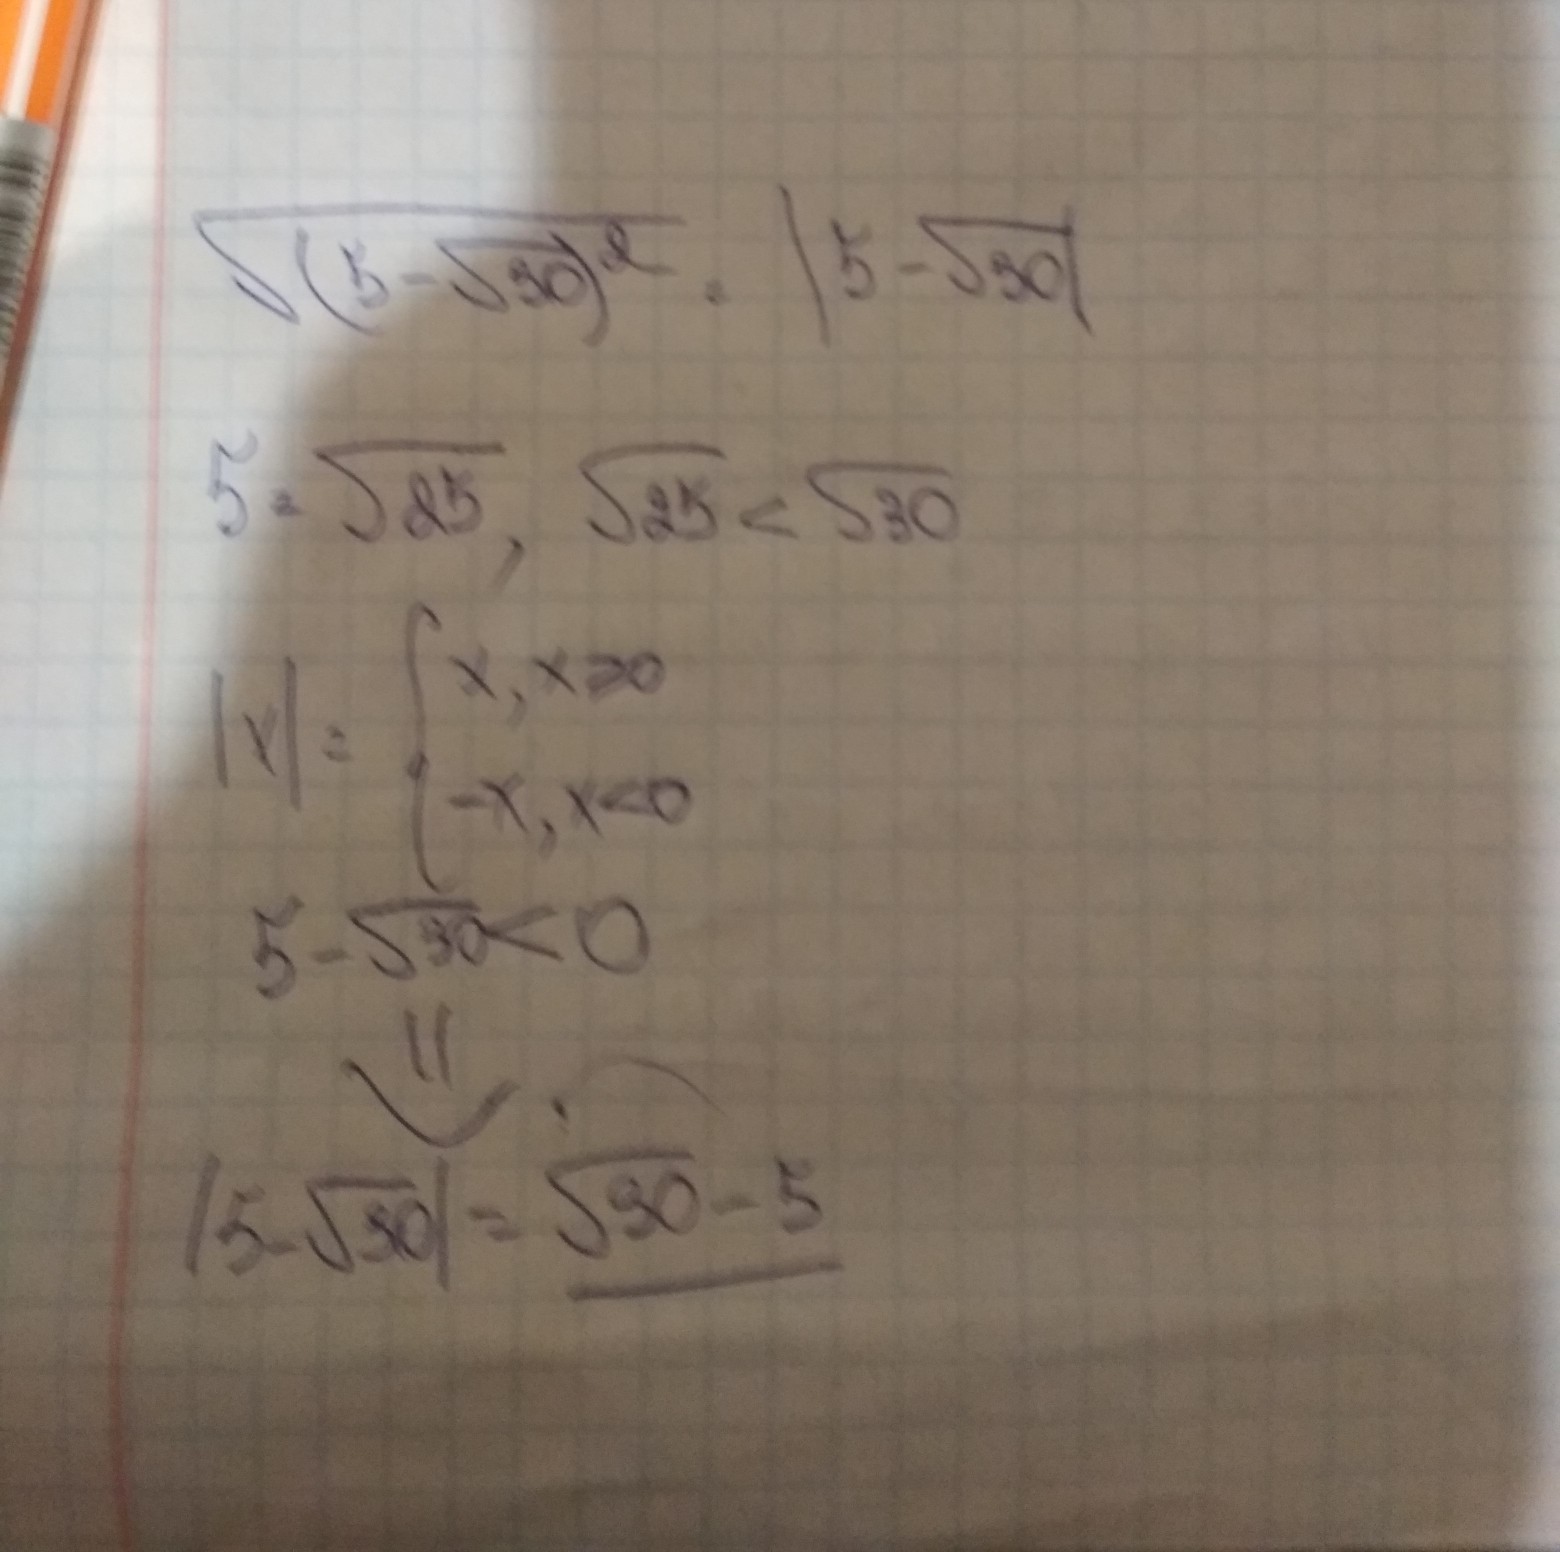 √(5-√30)² = |5-√30|
5=√25, √25<√30
|x| = { x, x≥0
-x, x<0
5-√30<0
⇓
|5-√30| = √30-5